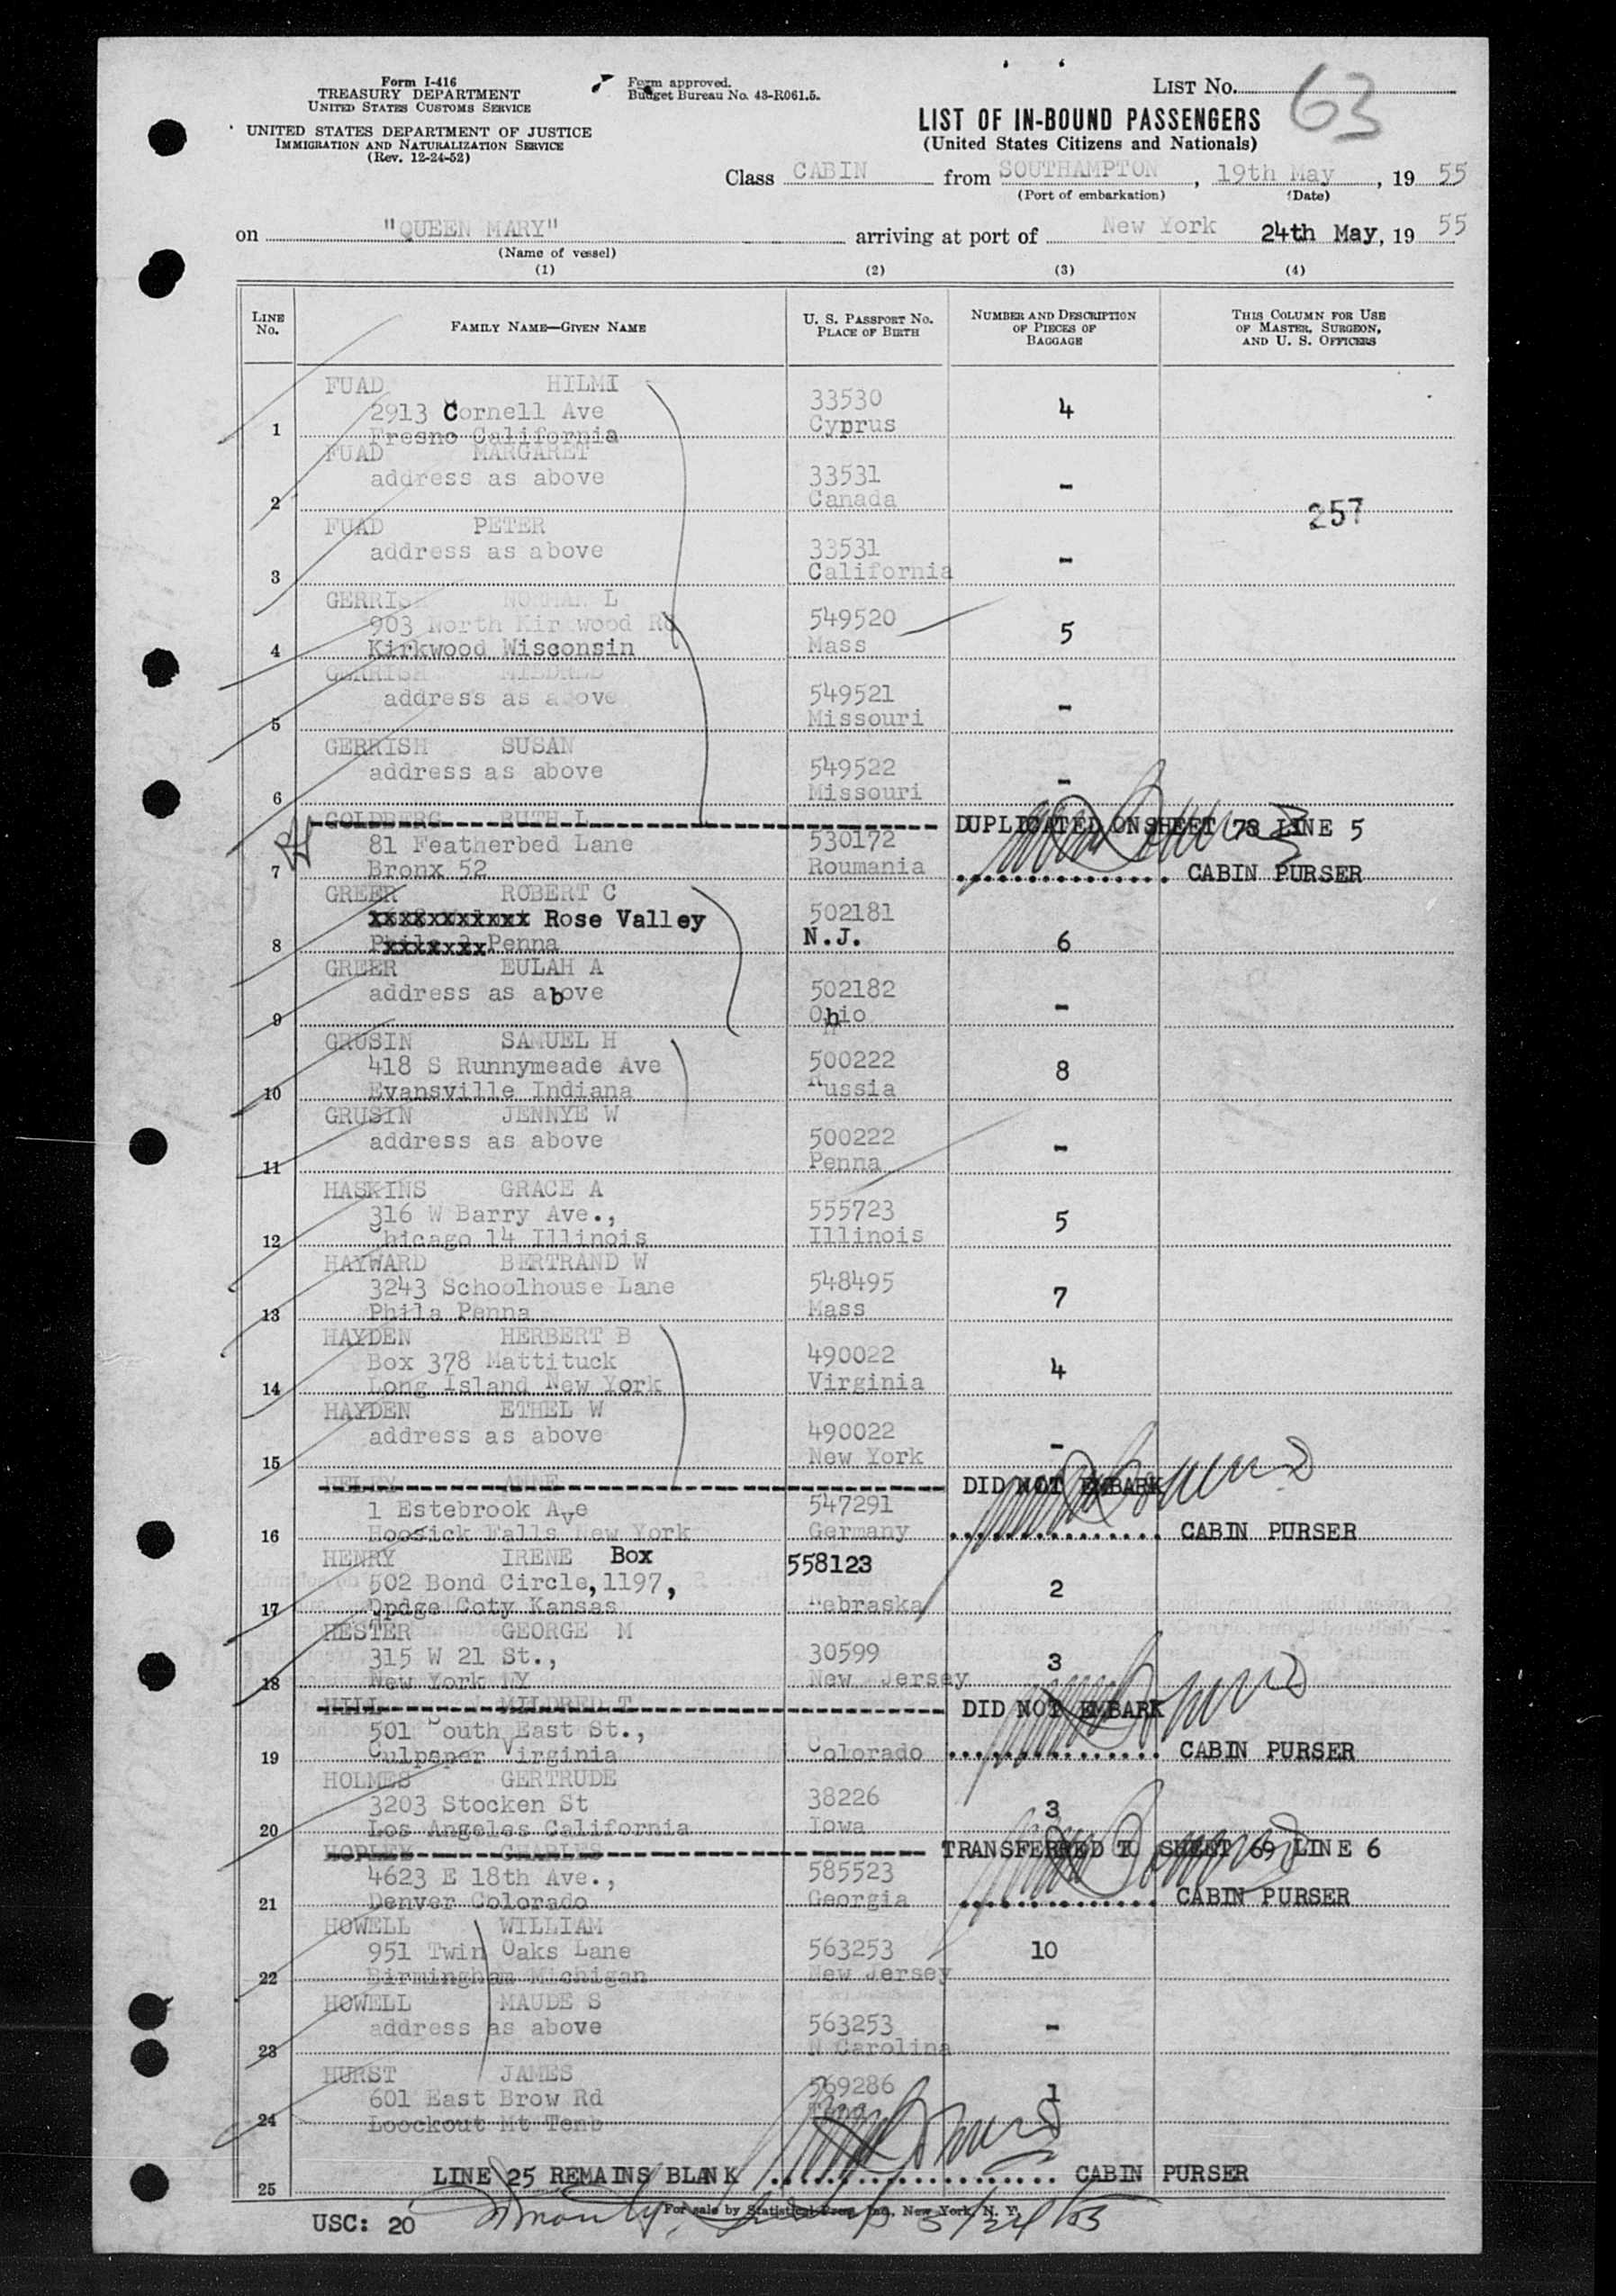 Form I-416
TREASURY DEPARTMENT
UNITED STATES CUSTOMS SERVICE
UNITED STATES DEPARTMENT OF JUSTICE
IMMIGRATION AND NATURALIZATION SERVICE
(Rev. 12-24-52)
Form approved.
Budget Bureau No. 43-R061.5.
LIST No. 63
LIST OF IN-BOUND PASSENGERS
(United States Citizens and Nationals)
Class CABIN from SOUTHAMPTON, 19th May, 19 55
(Port of embarkation) (Date)
on "QUEEN MARY" arriving at port of New York 24th May, 19 55
(Name of vessel)
(1) (2) (3) (4)
LINE No. FAMILY NAME—GIVEN NAME U. S. PASSPORT No. PLACE OF BIRTH NUMBER AND DESCRIPTION OF PIECES OF BAGGAGE THIS COLUMN FOR USE OF MASTER, SURGEON, AND U. S. OFFICERS
FUAD HILMI
2913 Cornell Ave 33530 4
1 Fresno California Cyprus
FUAD MARGARET
address as above 33531 -
2 Canada
257
FUAD PETER
address as above 33531 -
3 California
GERRISH NORMAN L
903 North Kirkwood Rd 549520 5
4 Kirkwood Wisconsin Mass
GERRISH MILDRED
address as above 549521 -
5 Missouri
GERRISH SUSAN
address as above 549522 -
6 Missouri
GOLDBERG RUTH L DUPLICATED ON SHEET 73 LINE 5
81 Featherbed Lane 530172
7 Bronx 52 Roumania CABIN PURSER
GREER ROBERT C
xxxxxxxxxxx Rose Valley 502181
8 Penna N.J. 6
GREER EULAH A
address as above 502182 -
9 Ohio
GRUSIN SAMUEL H
418 S Runnymeade Ave 500222 8
10 Evansville Indiana Russia
GRUSIN JENNYE W
address as above 500222 -
11 Penna
HASKINS GRACE A
316 W Barry Ave., 555723 5
12 Chicago 14 Illinois Illinois
HAYWARD BERTRAND W
3243 Schoolhouse Lane 548495 7
13 Phila Penna Mass
HAYDEN HERBERT B
Box 378 Mattituck 490022 4
14 Long Island New York Virginia
HAYDEN ETHEL W
address as above 490022 -
15 New York
HELEY ANNE DID NOT EMBARK
1 Estebrook Ave 547291
16 Hoosick Falls New York Germany CABIN PURSER
HENRY IRENE Box 558123
502 Bond Circle, 1197, 2
17 Dpdge Coty Kansas Nebraska
HESTER GEORGE M
315 W 21 St., 30599 3
18 New York NY New Jersey
HILL MILDRED T DID NOT EMBARK
501 South East St.,
19 Culpeper Virginia Colorado CABIN PURSER
HOLMES GERTRUDE
3203 Stocken St 38226 3
20 Los Angeles California Iowa
HOPLEY CHARLES TRANSFERRED TO SHEET 69 LINE 6
4623 E 18th Ave., 585523
21 Denver Colorado Georgia CABIN PURSER
HOWELL WILLIAM
951 Twin Oaks Lane 563253 10
22 Birmingham Michigan New Jersey
HOWELL MAUDE S
address as above 563253 -
23 N Carolina
HURST JAMES
601 East Brow Rd 569286 1
24 Loockout Mt Tenb
25 LINE 25 REMAINS BLANK CABIN PURSER
For sale by Statistical Press, Inc., New York, N. Y.
USC: 20